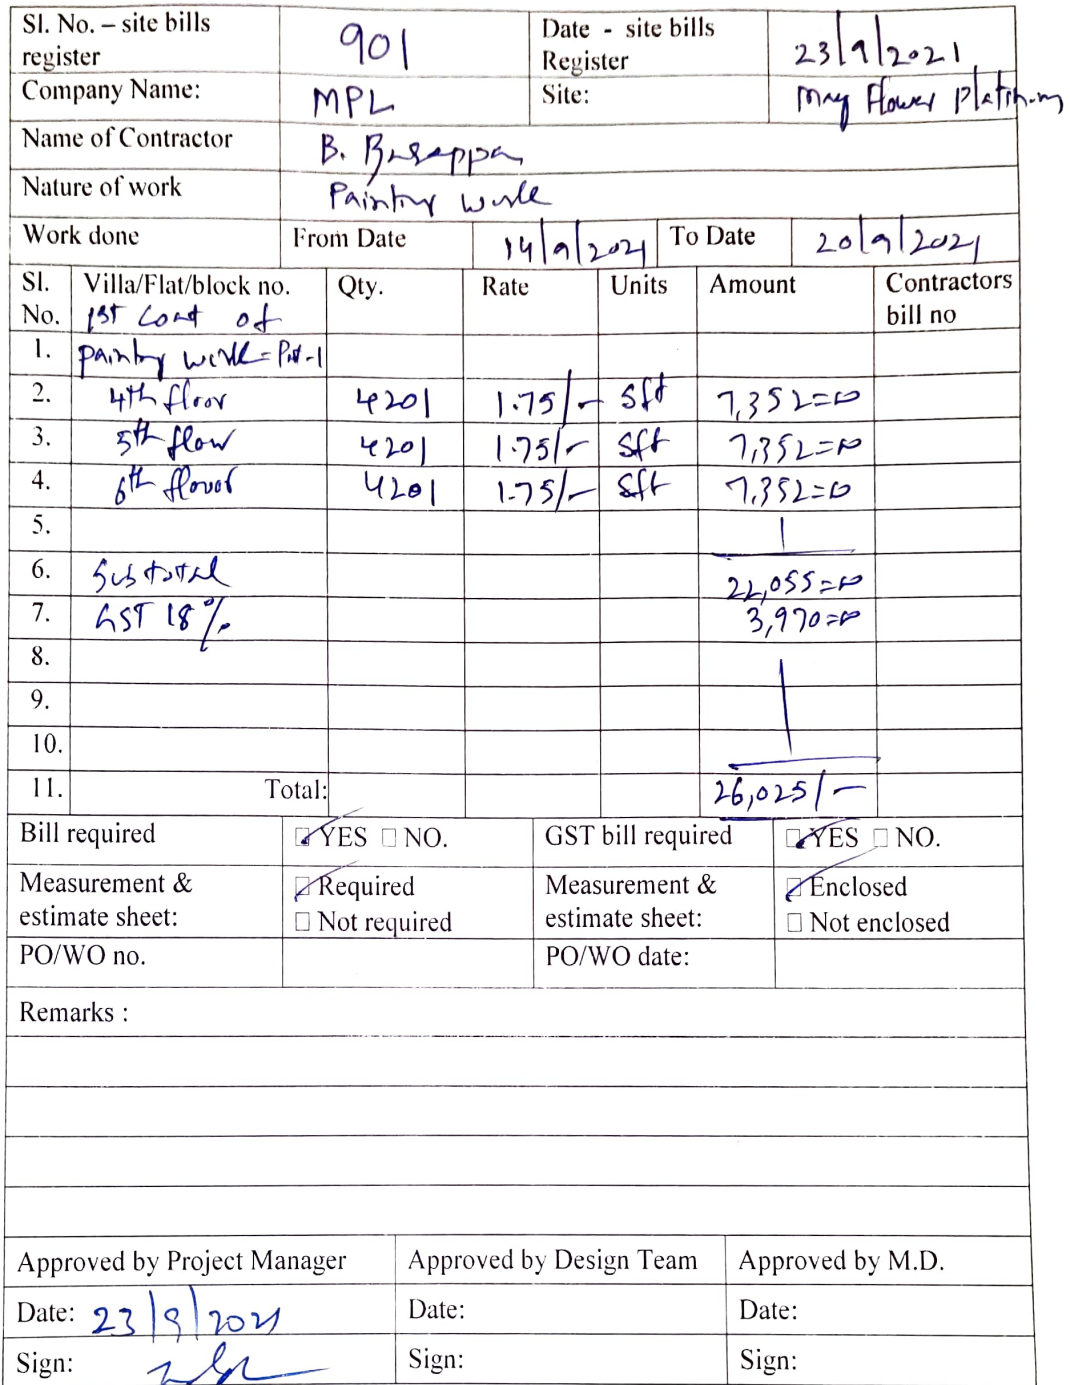 Sl. No. – site bills register 901 Date - site bills Register 23/9/2021
Company Name: MPL Site: May Flower Platinum
Name of Contractor B. Basappa
Nature of work Painting work
Work done From Date 14/9/2021 To Date 20/9/2021
Sl. No. Villa/Flat/block no. Qty. Rate Units Amount Contractors bill no
1st Coat of
1. painting work =
2. 4th floor 4201 1.75/- sft 7,352=00
3. 5th floor 4201 1.75/- sft 7,352=00
4. 6th floor 4201 1.75/- sft 7,352=00
5.
6. Sub total 22,055=00
7. GST 18% 3,970=00
8.
9.
10.
11. Total: 26,025/-
Bill required ☑ YES ☐ NO. GST bill required ☑ YES ☐ NO.
Measurement & estimate sheet: ☑ Required ☐ Not required Measurement & estimate sheet: ☑ Enclosed ☐ Not enclosed
PO/WO no. PO/WO date:
Remarks :
Approved by Project Manager Approved by Design Team Approved by M.D.
Date: 23/9/2021 Date: Date:
Sign: Sign: Sign: